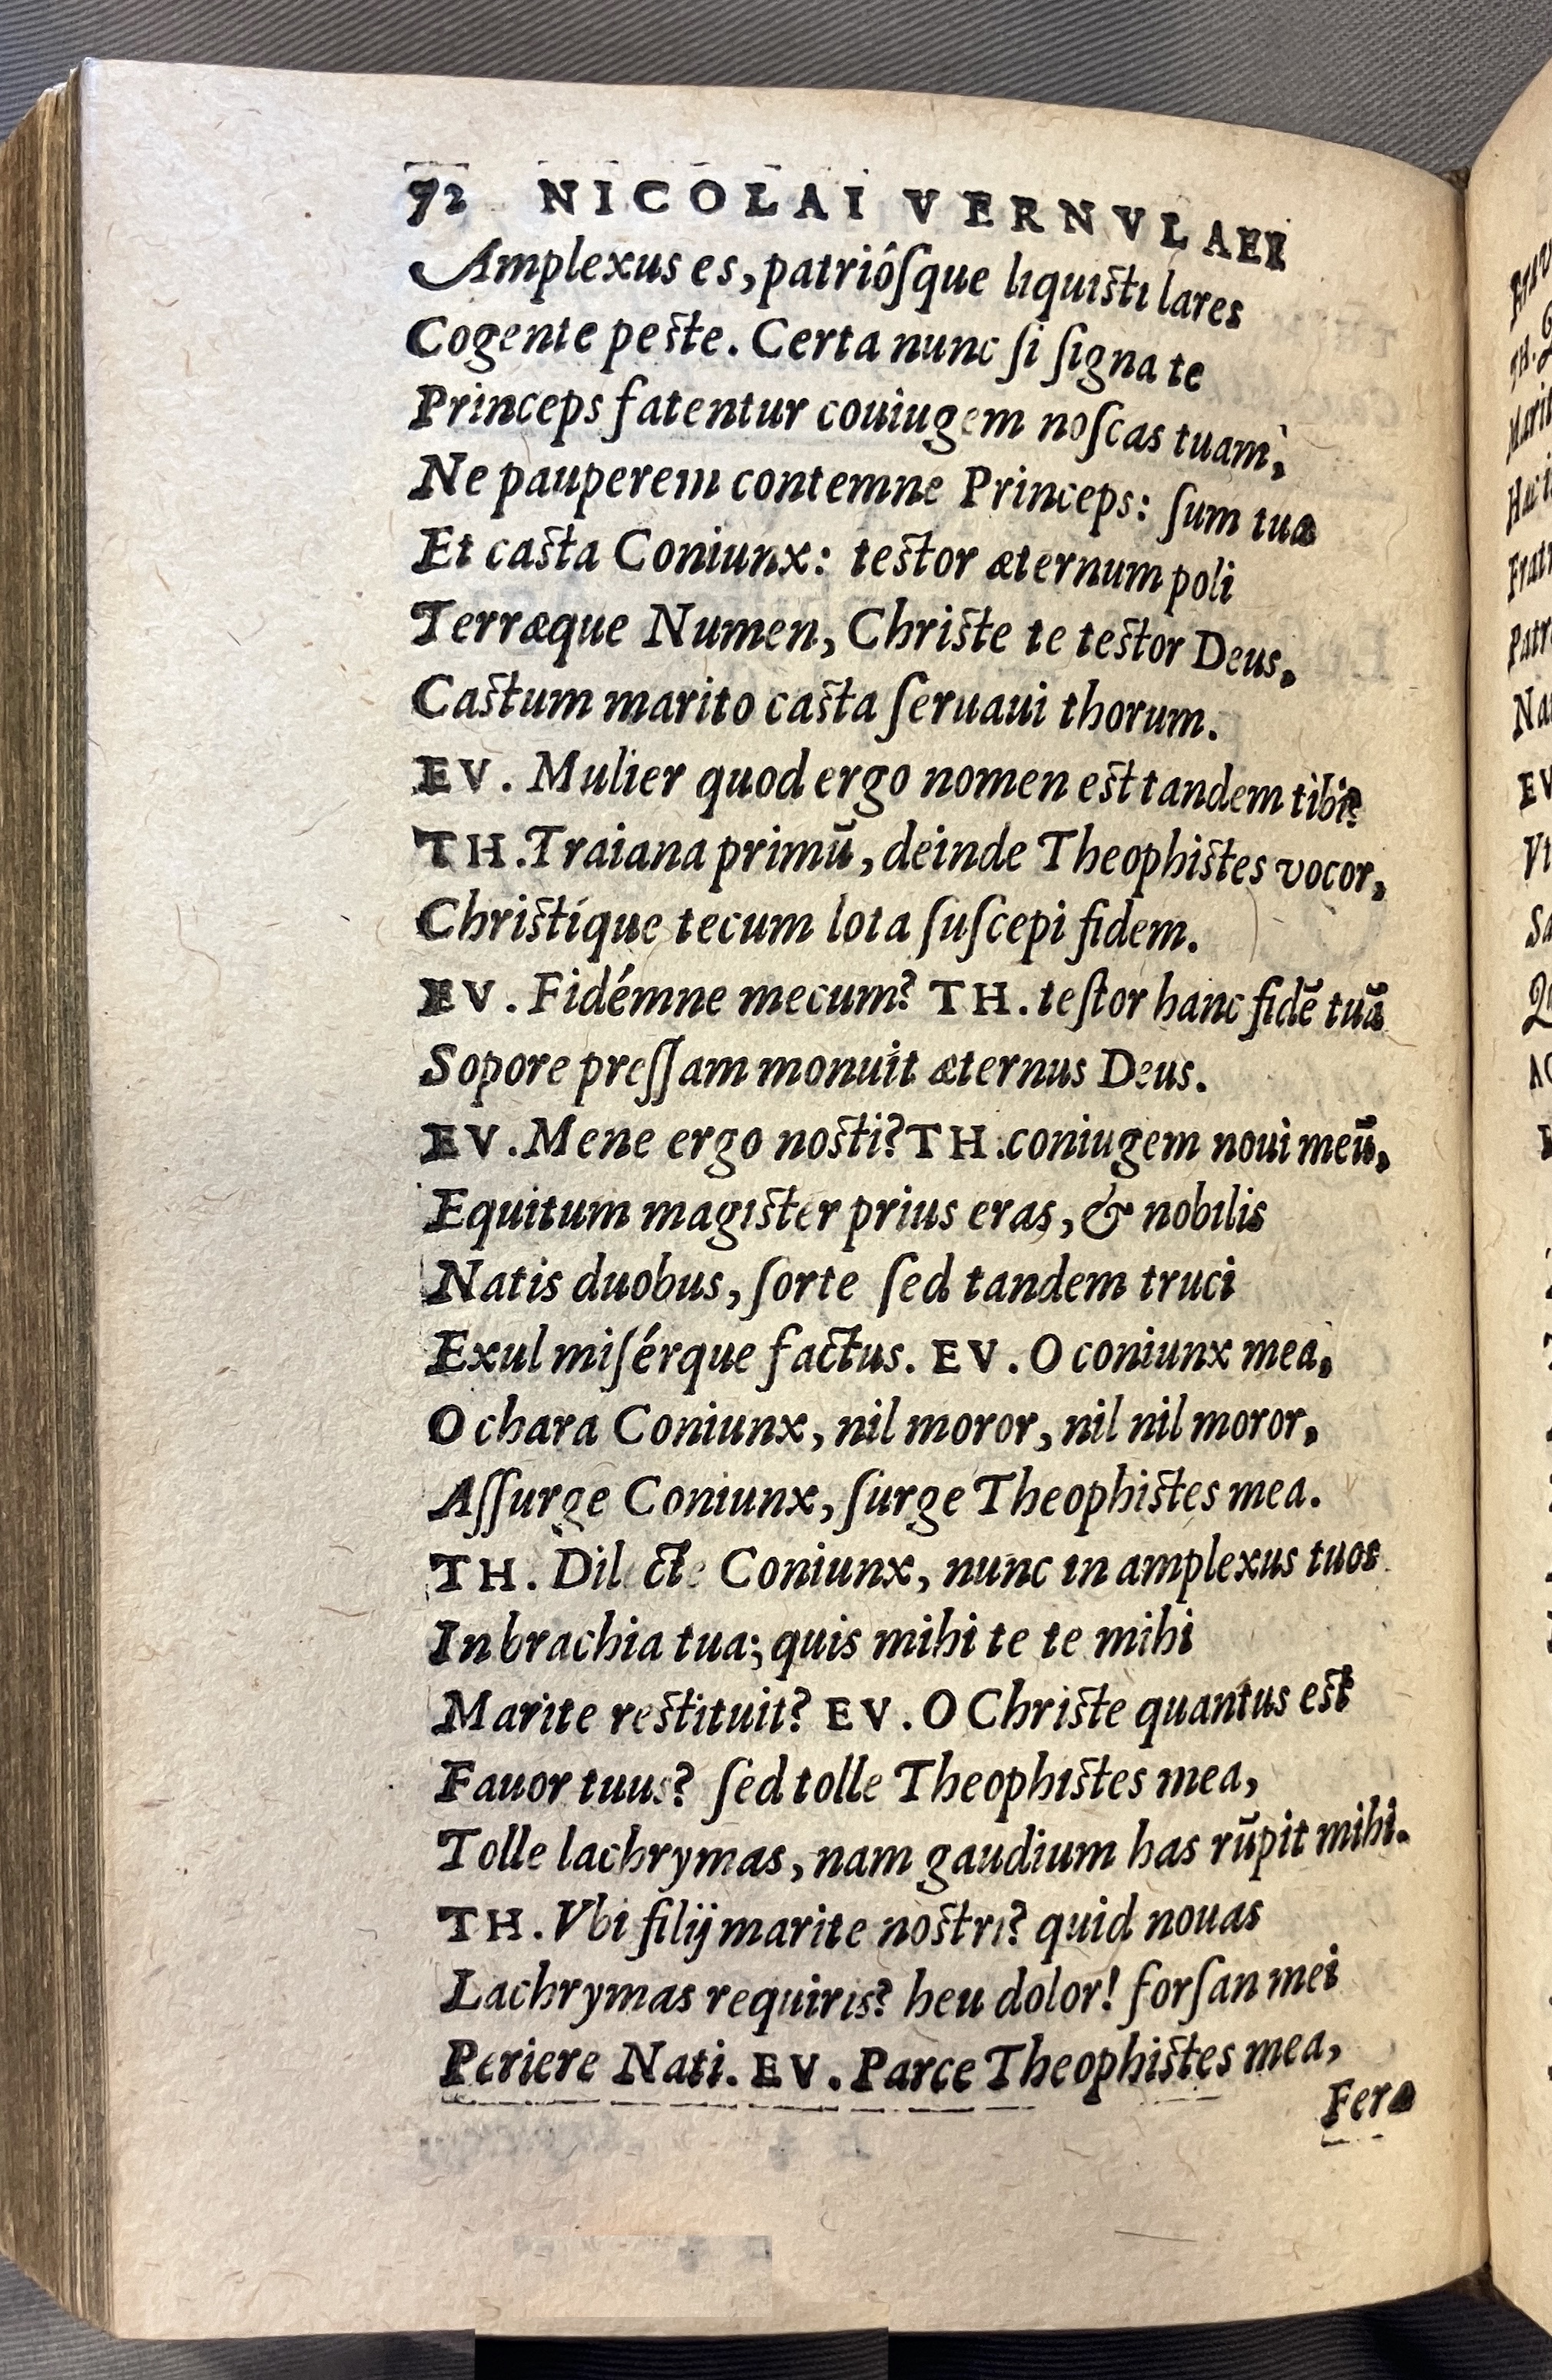 72 NICOLAI VERNVLAEI
Amplexus es, patriôſque liquiſti lares
Cogente peſte. Certa nunc ſi ſigna te
Princeps fatentur couiugem noſcas tuam,
Ne pauperem contemne Princeps: ſum tua
Et caſta Coniunx: teſtor æternum poli
Terræque Numen, Chriſte te teſtor Deus,
Caſtum marito caſta ſeruaui thorum.
EV. Mulier quod ergo nomen eſt tandem tibi?
TH. Traiana primū, deinde Theophiſtes vocor,
Chriſtíque tecum lota ſuſcepi fidem.
EV. Fidémne mecum? TH. teſtor hanc fidē tuā
Sopore preſſam monuit æternus Deus.
EV. Mene ergo noſti? TH. coniugem noui meū,
Equitum magiſter prius eras, & nobilis
Natis duobus, ſorte ſed tandem truci
Exul miſérque factus. EV. O coniunx mea,
O chara Coniunx, nil moror, nil nil moror,
Aſſurge Coniunx, ſurge Theophiſtes mea.
TH. Dilecte Coniunx, nunc in amplexus tuos
In brachia tua; quis mihi te te mihi
Marite reſtituit? EV. O Chriſte quantus eſt
Fauor tuus? ſed tolle Theophiſtes mea,
Tolle lachrymas, nam gaudium has rūpit mihi.
TH. Vbi filij marite noſtri? quid nouas
Lachrymas requiris? heu dolor! forſan mei
Periere Nati. EV. Parce Theophiſtes mea,
Fera